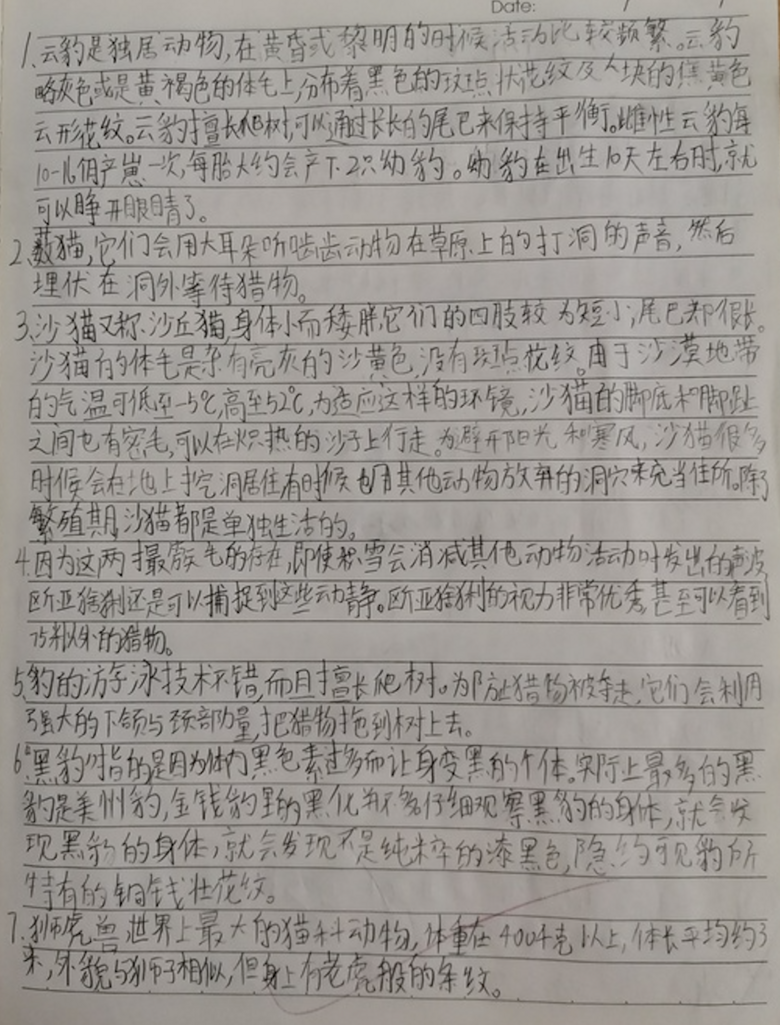 Date:
1.云豹是独居动物,在黄昏或黎明的时候活动比较频繁。云豹
略灰色或是黄褐色的体毛上,分布着黑色的斑点状花纹及大块的焦黄色
云形花纹。云豹擅长爬树,可以通过长长的尾巴来保持平衡。雌性云豹每
10-16个月产崽一次,每胎大约会产下2只幼豹。幼豹在出生10天左右时,就
可以睁开眼睛了。
2.薮猫,它们会用大耳朵听啮齿动物在草原上的打洞的声音,然后
埋伏在洞外等待猎物。
3.沙猫又称沙丘猫,身体小而矮胖,它们的四肢较为短小,尾巴却很长。
沙猫的体毛是杂有亮灰的沙黄色,没有斑点花纹。由于沙漠地带
的气温可低至-5℃,高至52℃,为适应这样的环镜,沙猫的脚底和脚趾
之间也有密毛,可以在炽热的沙子上行走。为避开阳光和寒风,沙猫很多
时候会在地上挖洞居住,有时候也用其他动物放弃的洞穴来充当住所。除了
繁殖期,沙猫都是单独生活的。
4.因为这两撮簇毛的存在,即使积雪会消减其他动物活动时发出的声波
欧亚猞猁还是可以捕捉到这些动静。欧亚猞猁的视力非常优秀,甚至可以看到
75米以外的猎物。
5.豹的游泳技术不错,而且擅长爬树。为防止猎物被夺走,它们会利用
强大的下颌与颈部力量,把猎物拖到树上去。
6.“黑豹”指的是因为体内黑色素过多而让身变黑的个体。实际上最多的黑
豹是美州豹,金钱豹里的黑化并不多仔细观察黑豹的身体,就会发
现黑豹的身体,就会发现不是纯粹的漆黑色,隐约可见豹所
特有的铜钱壮花纹。
7.狮虎兽世界上最大的猫科动物,体重在400千克以上,体长平均约3
米,外貌与狮子相似,但身上有老虎般的条纹。